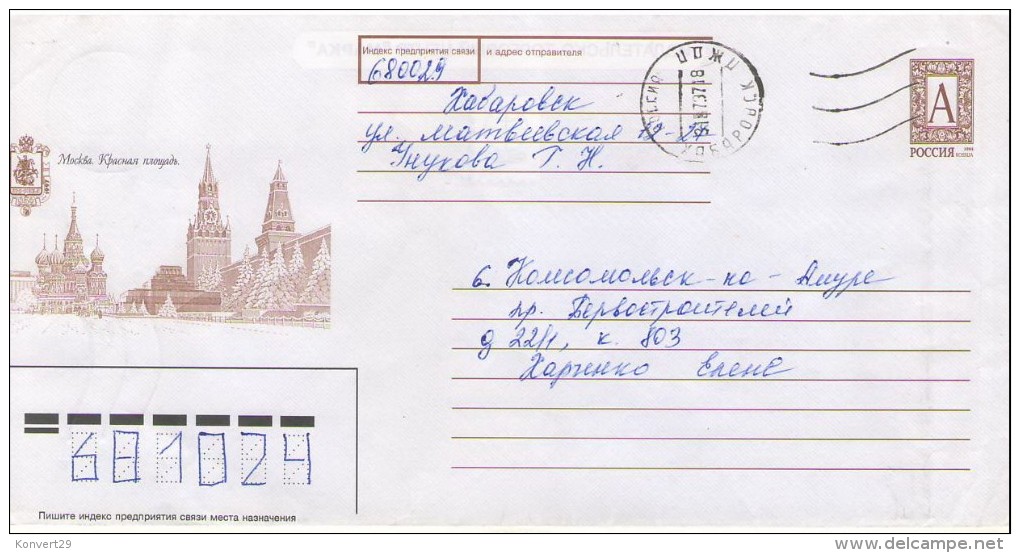 Индекс предприятия связи и адрес отправителя
680029
Хабаровск
ул. Матвеевская
Унукова Т. Н.
РОССИЯ ЦПЖПП ХАБАРОВСК
А
РОССИЯ
ROSSIJA
Москва. Красная площадь.
г. Комсомольск-на-Амуре
пр. Первостроителей
д 22/1, к. 803
Харченко Елене
681024
Пишите индекс предприятия связи места назначения
Konvert29
delcampe.net